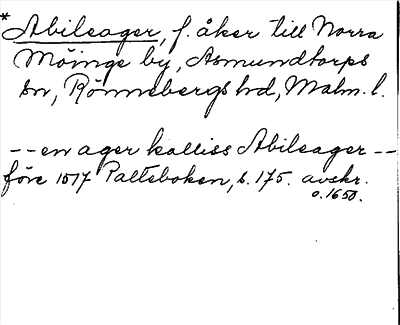 * Abileager, f. åker till Norra
Möinge by, Asmundtorps
sn, Rönnebergs hd, Malm. l.
-- en ager kalliss Abileager --
före 1517 Palteboken, s. 175. avskr.
o. 1650.